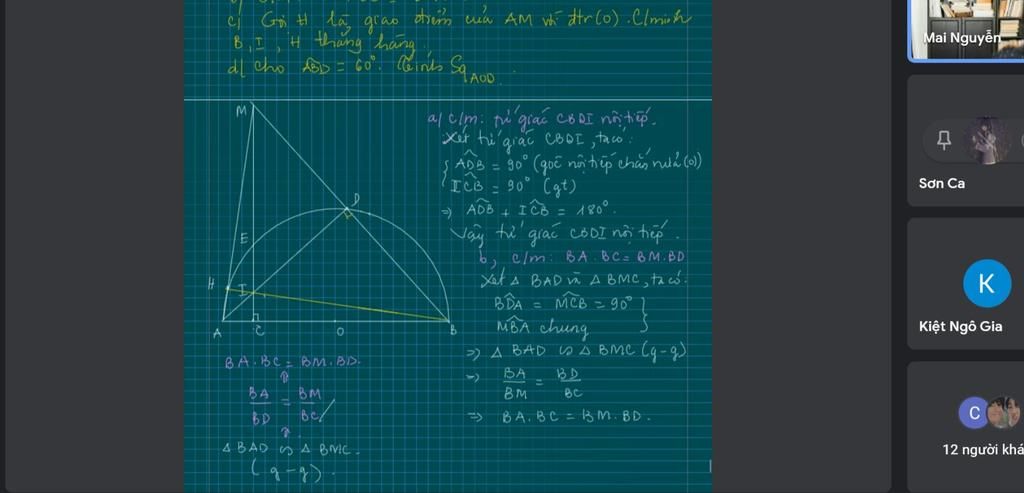 c) Gọi H là giao điểm của AM với đtr(O). C/minh
B, I, H thẳng hàng.
d) cho ABD = 60°. Tính Sq AOD.
M
D
E
H
I
A
C
O
B
a) c/m: tứ giác CBDI nội tiếp.
Xét tứ giác CBDI, ta có:
ADB = 90° (góc nội tiếp chắn nửa (O))
ICB = 90° (gt)
⇒ ADB + ICB = 180°.
Vậy tứ giác CBDI nội tiếp.
b, c/m: BA.BC = BM.BD
Xét △ BAD và △ BMC, ta có:
BDA = MCB = 90°
MBA chung
⇒ △ BAD ∽ △ BMC (g-g)
⇒ BA/BM = BD/BC
⇒ BA.BC = BM.BD.
BA.BC = BM.BD.
⇑
BA/BD = BM/BC
⇑
△ BAD ∽ △ BMC.
(g-g).
Mai Nguyễn
Sơn Ca
K
Kiệt Ngô Gia
C
12 người khá